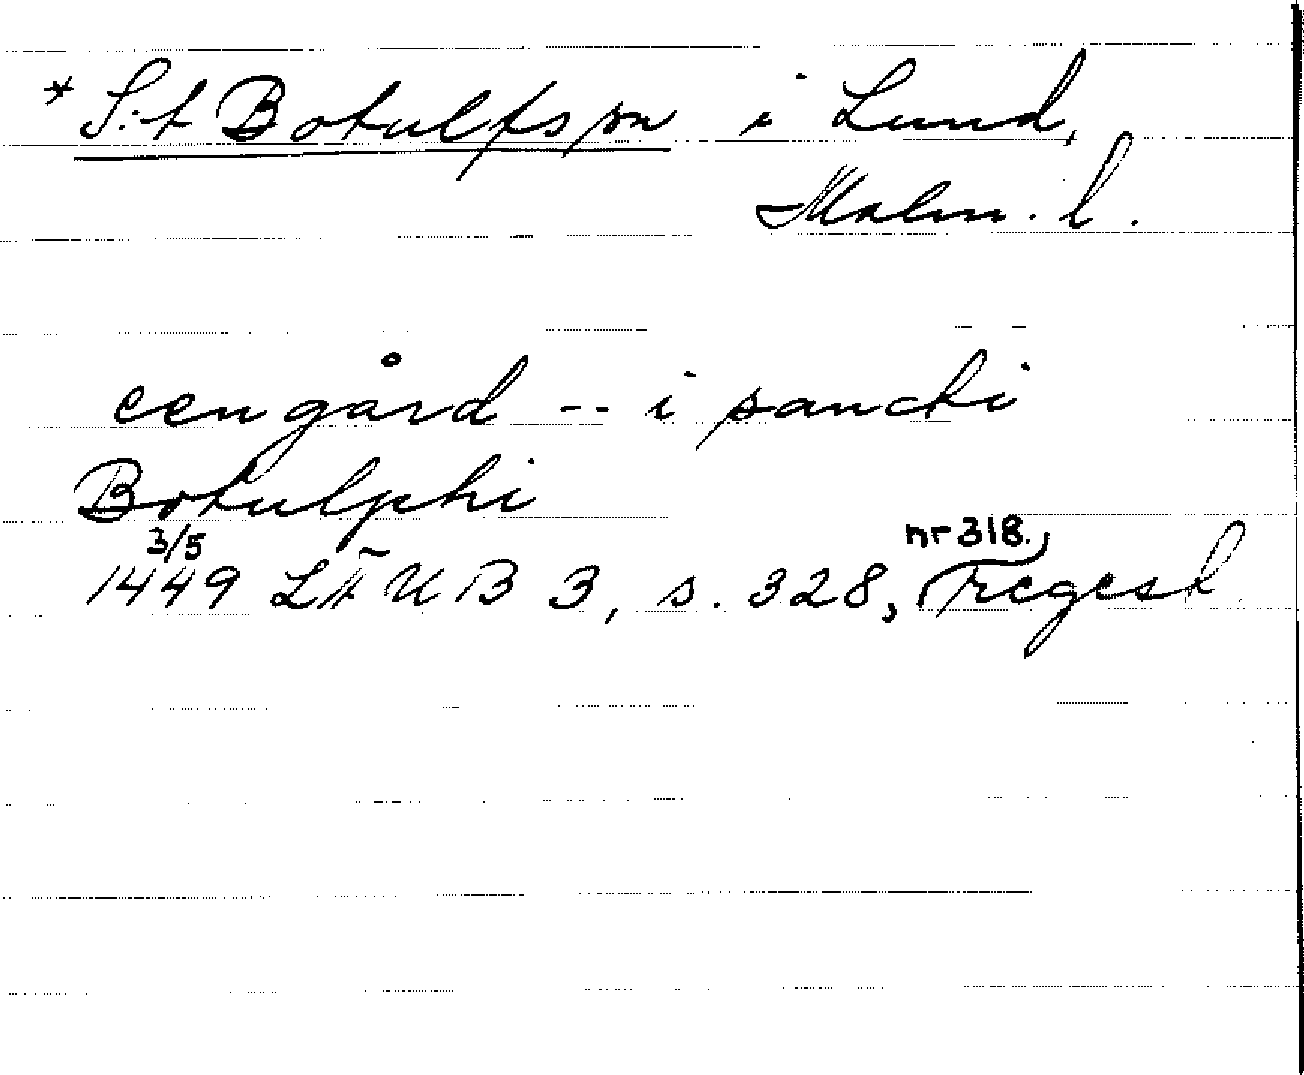 * S:t Botulfs sn i Lund,
Malm. l.
een gård -- i sancti
Botulphi
3/5 nr 318.
1449 LÄUB 3, s. 328, regest